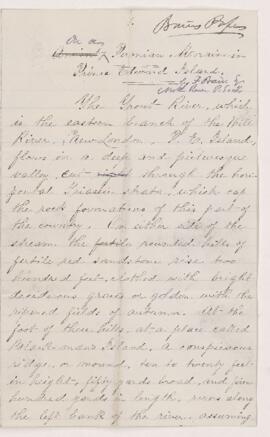 Bain's Paper
On a
Permian Moraine in
Prince Edward Island.
by F. Bain Esq
North River P. E. I.
The Trout River, which
is the eastern branch of the
River, New London, P. E. Island,
flows in a deep and picturesque
valley, cut through the hori-
zontal Triassic strata, which cap
the rock formations of this part of
the country. On either side of the
stream the rounded hills of
fertile red sandstone rise two
hundred feet, clothed with bright
deciduous groves or golden with the
ripened fields of autumn. At the
foot of these hills, at a place called
Island, a conspicuous
ridge, or mound, ten to twenty feet
in height, fifty yards broad, and five
hundred yards in length, runs along
the left bank of the river, assuming